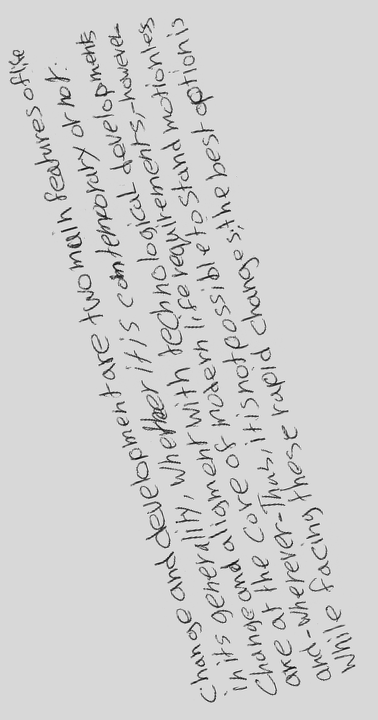 Change and development are two main features of life
in its generality, whether it is contemporary or not.
Change and aligment with technological developments
are at the core of modern life requirements,-however
and-wherever-Thus, it is not possible to stand motionless
while facing these rapid changes; the best option is